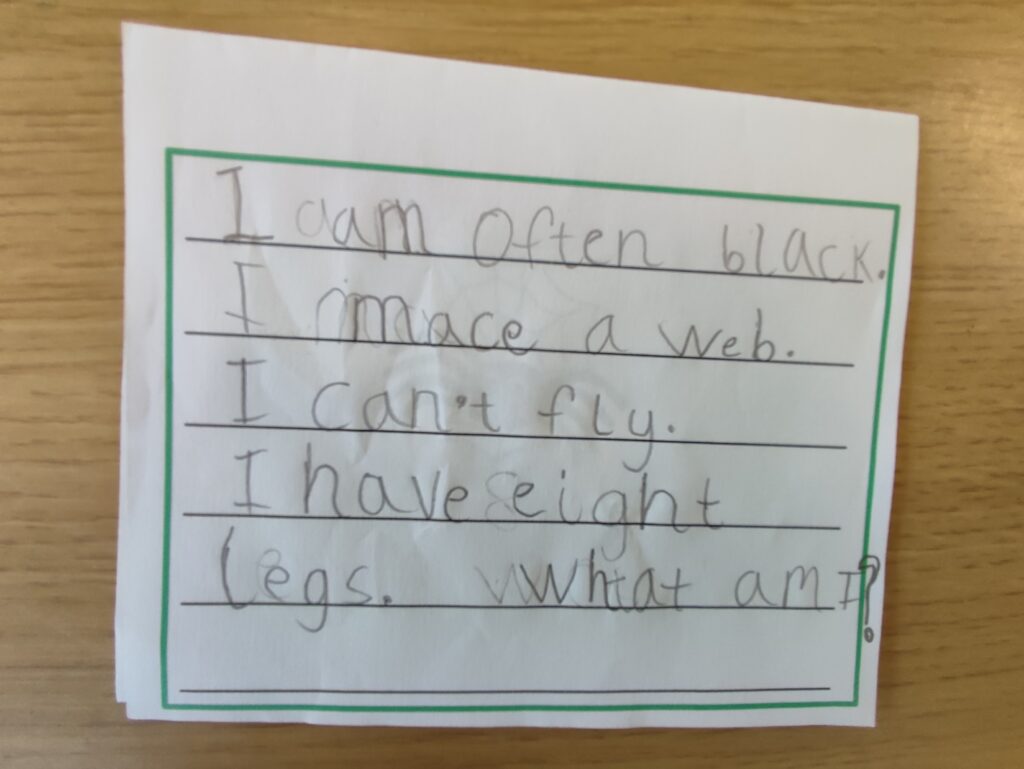 I am often black.
I mace a web.
I can't fly.
I have eight
legs. What am I?